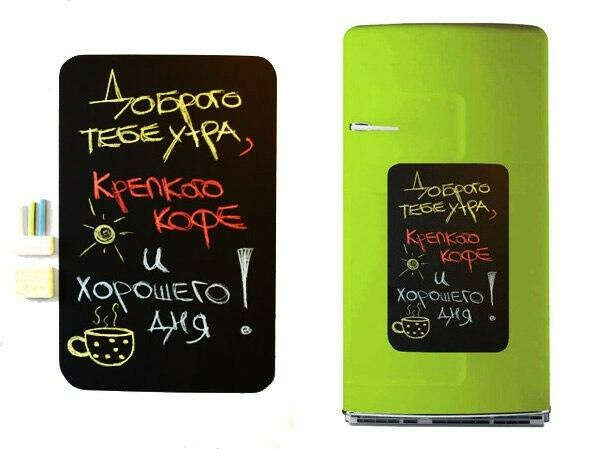 Доброго
тебе утра,
Крепкого
кофе
и
хорошего
дня!
Доброго
тебе утра,
Крепкого
кофе
и
хорошего
дня!